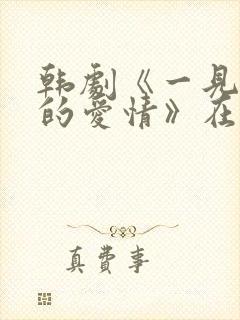 韩剧《一见
的爱情》在
真费事